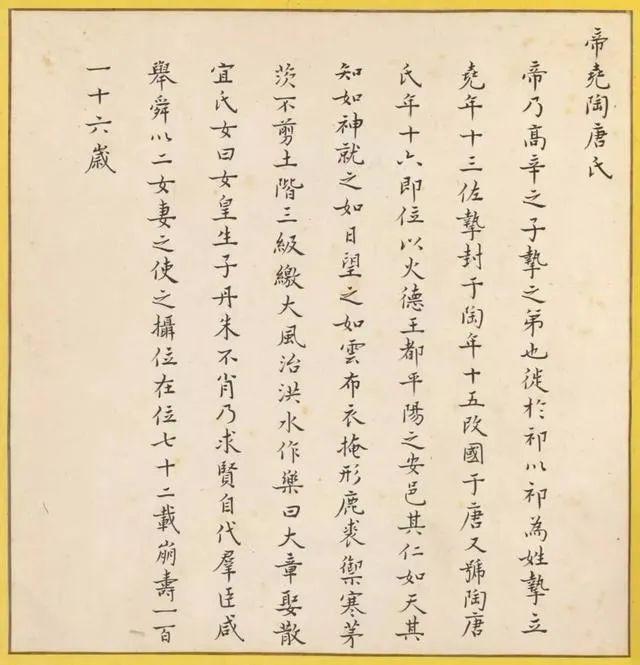 帝堯陶唐氏
帝乃高辛之子摯之弟也徙於祁以祁為姓摯立
堯年十三佐摯封于陶年十五改國于唐又號陶唐
氏年十六即位以火德王都平陽之安邑其仁如天其
知如神就之如日望之如雲布衣掩形鹿裘禦寒茅
茨不剪土階三級繳大風治洪水作樂曰大章娶散
宜氏女曰女皇生子丹朱不肖乃求賢自代羣臣咸
舉舜以二女妻之使之攝位在位七十二載崩壽一百
一十六歲